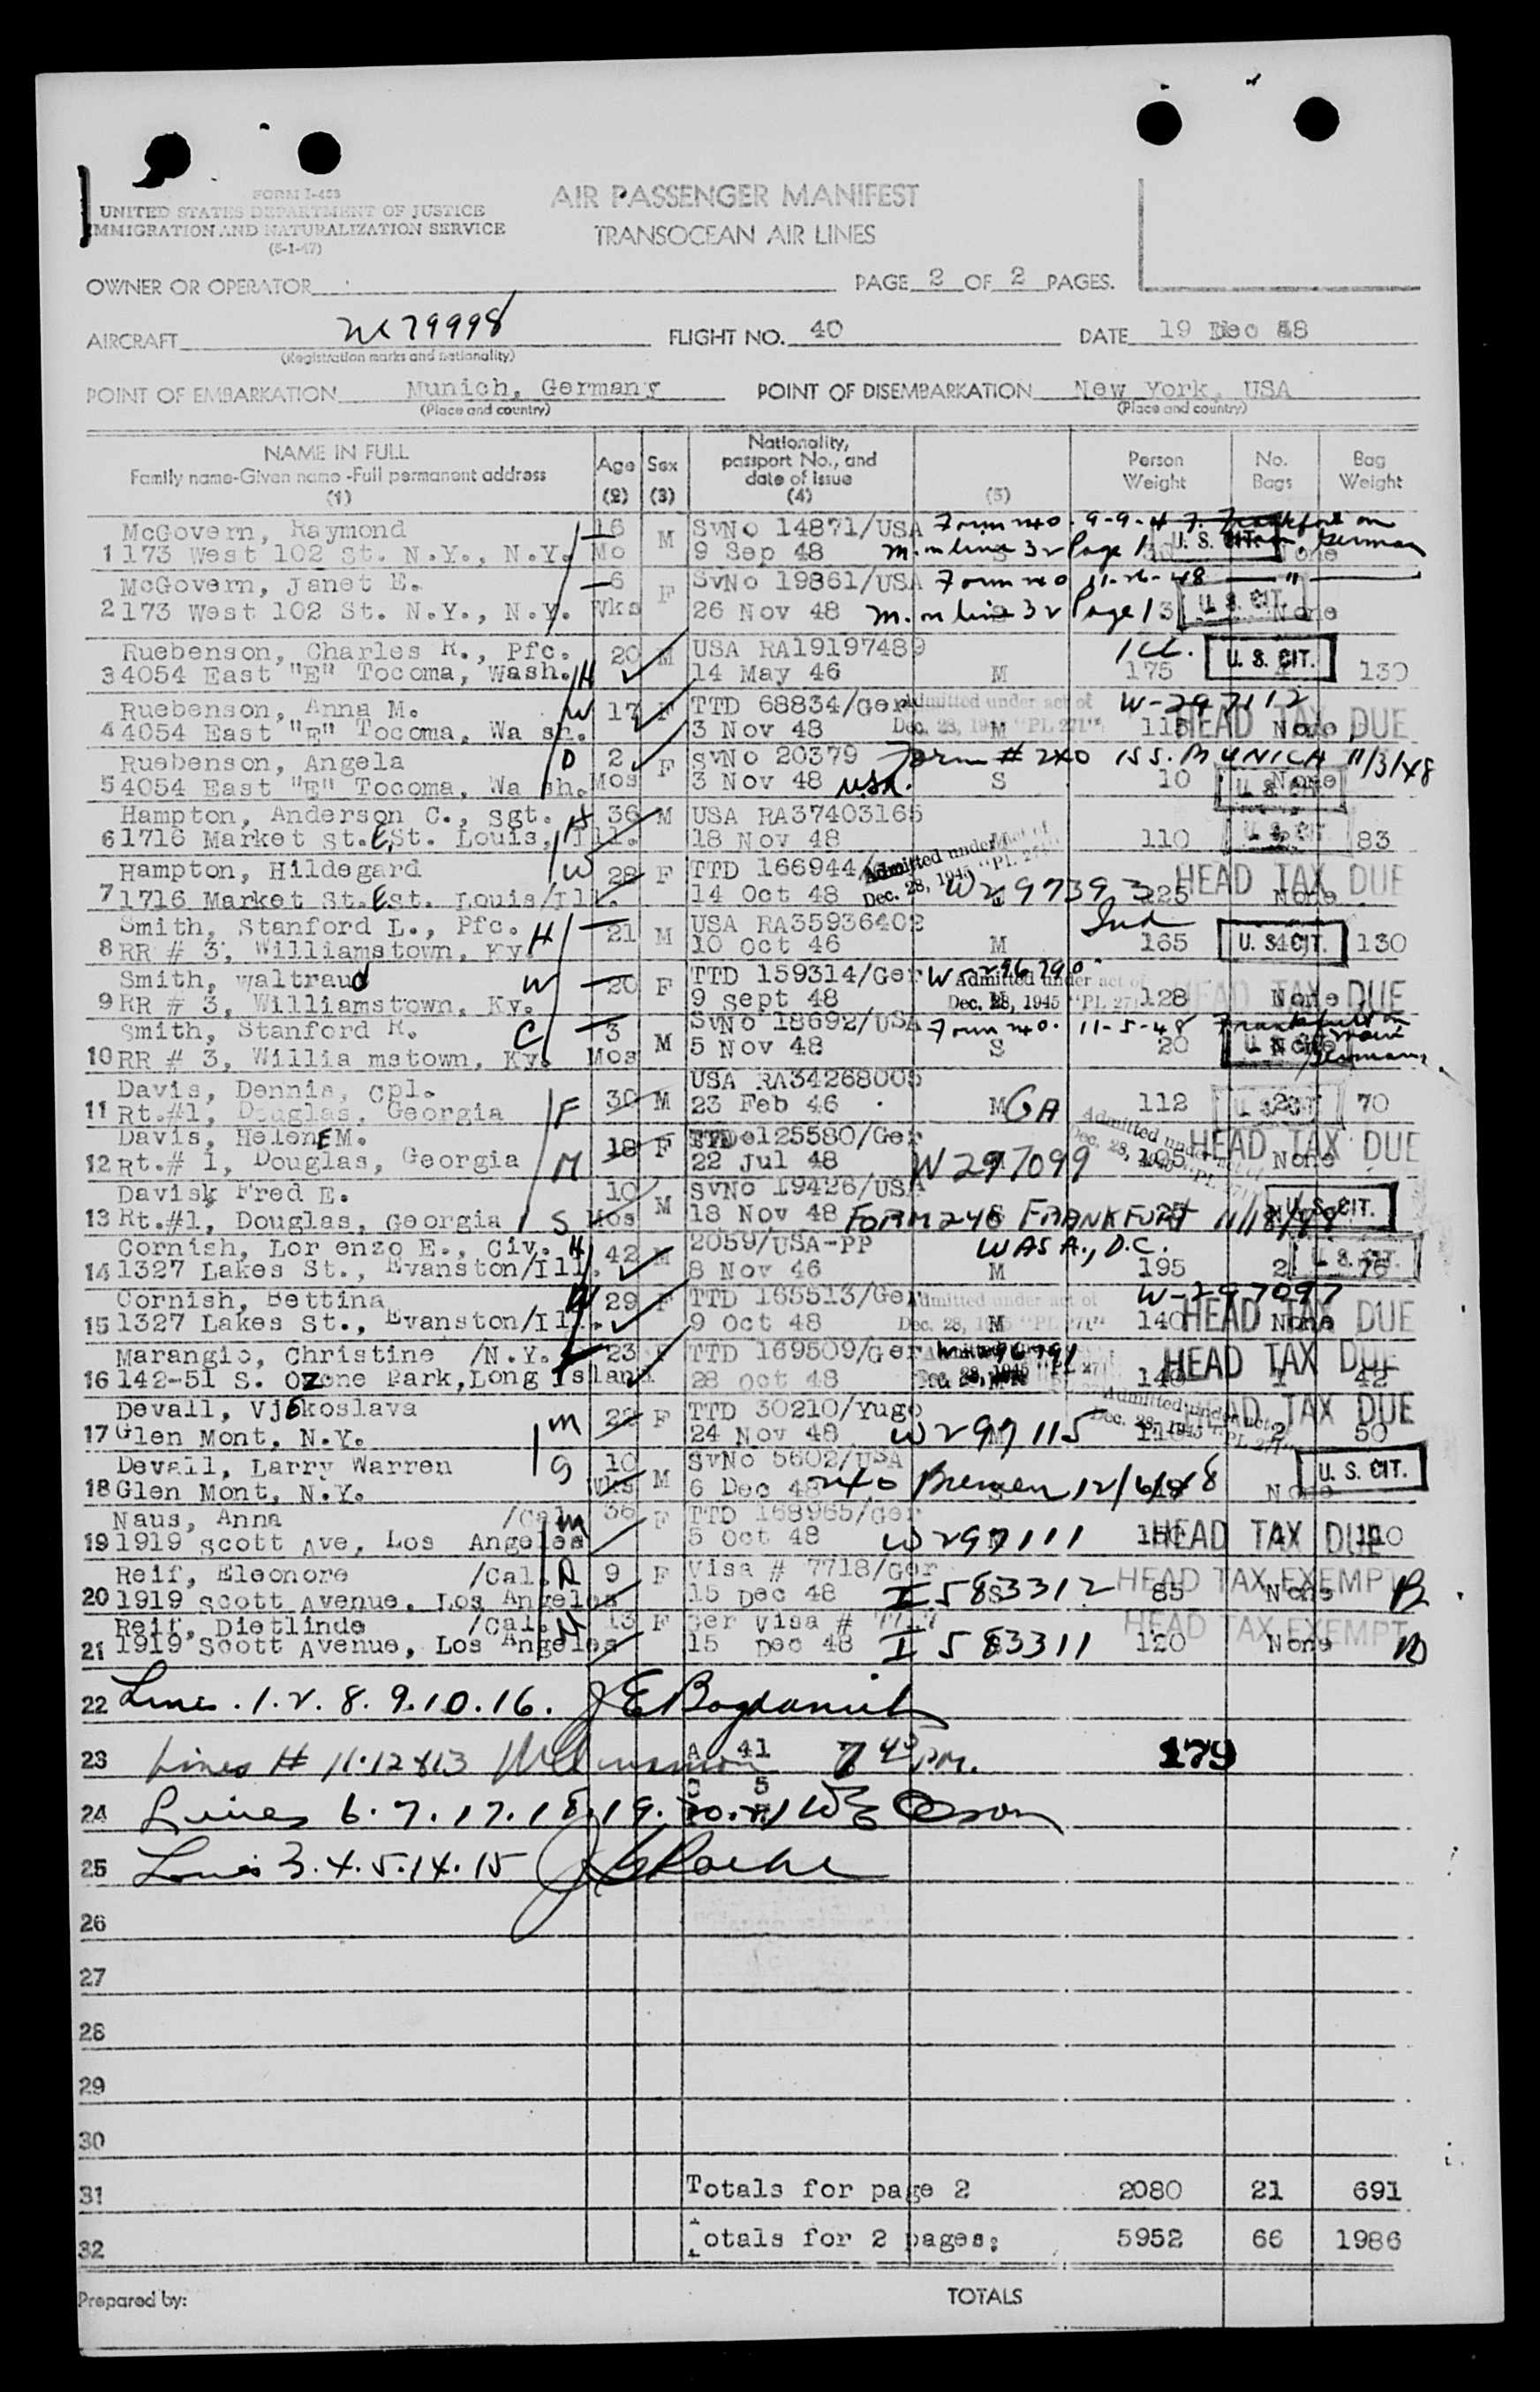 FORM I-453
UNITED STATES DEPARTMENT OF JUSTICE
IMMIGRATION AND NATURALIZATION SERVICE
(5-1-47)
AIR PASSENGER MANIFEST
TRANSOCEAN AIR LINES
OWNER OR OPERATOR
PAGE 2 OF 2 PAGES.
AIRCRAFT 79998 FLIGHT NO. 40 DATE 19 Dec 48
(Registration marks and nationality)
POINT OF EMBARKATION Munich, Germany POINT OF DISEMBARKATION New York, USA
(Place and country) (Place and country)
NAME IN FULL Family name-Given name-Full permanent address (1) Age (2) Sex (3) Nationality, passport No., and date of issue (4) (5) Person Weight No. Bags Bag Weight
McGovern, Raymond 16 M SvNo 14871/USA
1 173 West 102 St. N.Y., N.Y. Mo 9 Sep 48 m. on line 32 Page 1 U. S. CIT. None
McGovern, Janet E. 6 F SvNo 19861/USA 11-26-48 "
2 173 West 102 St. N.Y., N.Y. Wks 26 Nov 48 m. on line 32 Page 1 U. S. CIT. None
Ruebenson, Charles R., Pfc. 20 M USA RA19197489
3 4054 East "E" Tocoma, Wash. H 14 May 46 M 175 U. S. CIT. 130
Ruebenson, Anna M. W 17 F TTD 68834/Ger Admitted under act of W-297112
4 4054 East "E" Tocoma, Wa sh. 3 Nov 48 Dec. 28, 1945 "PL 271" M 115 None HEAD TAX DUE
Ruebenson, Angela D 2 F SvNo 20379 Form # 240 ISS. MUNICH 11/3/48
5 4054 East "E" Tocoma, Wa sh. Mos 3 Nov 48 USA. S 10 None U. S. CIT.
Hampton, Anderson C., Sgt. H 36 M USA RA37403165
6 1716 Market St. E. St. Louis, Ill. 18 Nov 48 M 110 U. S. CIT. 83
Hampton, Hildegard W 28 F TTD 166944/ Admitted under act of
7 1716 Market St. E. St. Louis/Ill. 14 Oct 48 Dec. 28, 1945 W297393 225 None HEAD TAX DUE
Smith, Stanford L., Pfc. H 21 M USA RA35936402 Ind
8 RR # 3, Williamstown, Ky. 10 Oct 46 M 165 U. S. CIT. 130
Smith, Waltraud W 20 F TTD 159314/Ger W296790 Admitted under act of
9 RR # 3, Williamstown, Ky. 9 Sept 48 Dec. 28, 1945 "PL 271 128 None HEAD TAX DUE
Smith, Stanford R. C 3 M SvNo 18692/USA Form 240. 11-5-48
10 RR # 3, Willia mstown, Ky. Mos 5 Nov 48 S 20 None U. S. CIT.
Davis, Dennis, Cpl. 30 M USA RA34268005
11 Rt.#1, Douglas, Georgia F 23 Feb 46 M GA 112 2 U. S. CIT. 70
Davis, Helene M. 18 F TTD 125580/Ger Admitted under act of
12 Rt.# 1, Douglas, Georgia M 22 Jul 48 W297099 105 None HEAD TAX DUE
Davis, Fred E. 10 M SvNo 19426/USA
13 Rt.#1, Douglas, Georgia S Mos 18 Nov 48 FORM 240 FRANKFURT 11/18/48 25 U. S. CIT.
Cornish, Lor enzo E., Civ. H 42 M 2059/USA-PP WASH., D.C.
14 1327 Lakes St., Evanston/Ill. 8 Nov 46 M 195 2 U. S. CIT. 75
Cornish, Bettina W 29 F TTD 165513/Ger Admitted under act of W-297097
15 1327 Lakes St., Evanston/Ill. 9 Oct 48 Dec. 28, M "PL 271" 140 None HEAD TAX DUE
Marangio, Christine /N.Y. 23 F TTD 169509/Ger
16 142-51 S. Ozone Park, Long Island 28 Oct 48 Dec. 28, 1945 140 1 42 HEAD TAX DUE
Devall, Vjekoslava M 22 F TTD 30210/Yugo Admitted under act of
17 Glen Mont, N.Y. 24 Nov 48 W297115 Dec. 28, 1945 "PL 271" 2 50 HEAD TAX DUE
Devall, Larry Warren S 10 M SvNo 5602/USA
18 Glen Mont, N.Y. Wks 6 Dec 48 240 Bremen 12/6/48 None U. S. CIT.
Naus, Anna /Cal. M 36 F TTD 168965/Ger
19 1919 Scott Ave, Los Angeles 5 Oct 48 W297111 HEAD TAX DUE
Reif, Eleonore /Cal. D 9 F Visa # 7718/Ger
20 1919 Scott Avenue, Los Angeles 15 Dec 48 I 583312 85 None HEAD TAX EXEMPT
Reif, Dietlinde /Cal. 13 F Ger Visa #
21 1919 Scott Avenue, Los Angeles 15 Dec 48 I 583311 120 None HEAD TAX EXEMPT
22 Lines . 1. 2. 8. 9. 10. 16.
23 Lines # 11.12 &13 A 41 7 45 PM. 179
24 Lines 6. 7. 17. 18. 19. 20. 21 C 5
25 Lines 3. 4. 5. 14. 15
26
27
28
29
30
31 Totals for page 2 2080 21 691
32 Totals for 2 pages: 5952 66 1986
Prepared by: TOTALS